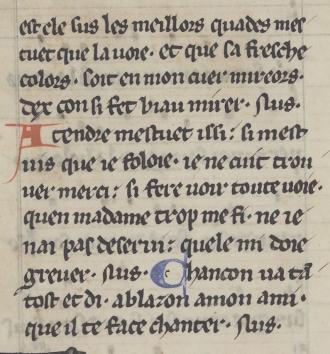 est ele sus les meillors quades mes
tuet que la uoie · et que sa fresche
colors · soit en mon cuer mireors ·
dex con si fet biau mirer · sius ·
A tendre mestuet issi : si mest
uis que ie foloie · ie ne cuit trou
uer merci : si fere uoir toute uoie ·
quen madame trop me fi · ne ie
nai pas deserui : quele mi doie
greuer · sius · Chancon ua tā
tost et di · a blazon a mon ami ·
que il te face chanter · sius ·